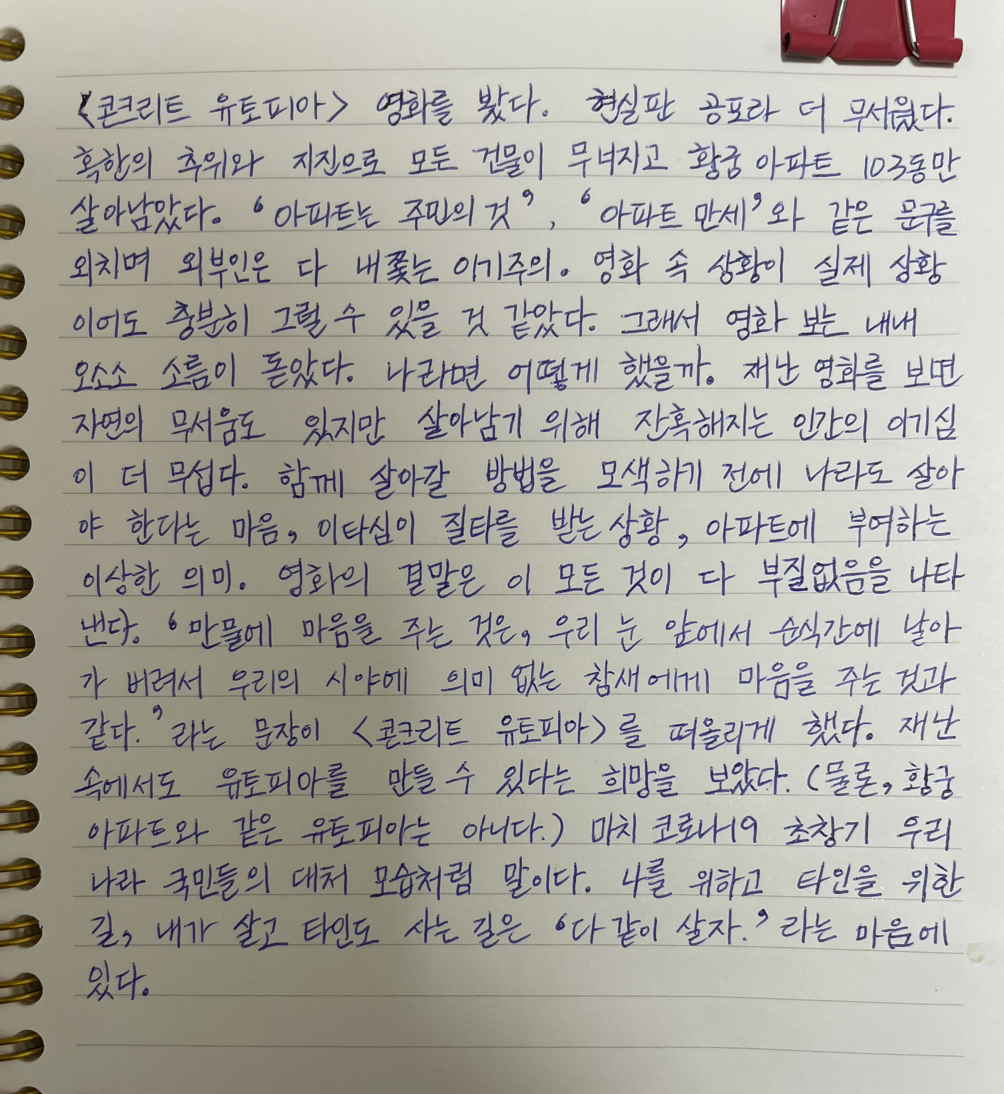 <콘크리트 유토피아> 영화를 봤다. 현실판 공포라 더 무서웠다.
혹한의 추위와 지진으로 모든 건물이 무너지고 황궁 아파트 103동만
살아남았다. '아파트는 주민의 것', '아파트 만세'와 같은 문구를
외치며 외부인은 다 내쫓는 이기주의. 영화 속 상황이 실제 상황
이어도 충분히 그럴 수 있을 것 같았다. 그래서 영화 보는 내내
오소소 소름이 돋았다. 나라면 어떻게 했을까. 재난 영화를 보면
자연의 무서움도 있지만 살아남기 위해 잔혹해지는 인간의 이기심
이 더 무섭다. 함께 살아갈 방법을 모색하기 전에 나라도 살아
야 한다는 마음, 이타심이 질타를 받는 상황, 아파트에 부여하는
이상한 의미. 영화의 결말은 이 모든 것이 다 부질없음을 나타
낸다. '만물에 마음을 주는 것은, 우리 눈 앞에서 순식간에 날아
가 버려서 우리의 시야에 의미 없는 참새에게 마음을 주는 것과
같다.'라는 문장이 <콘크리트 유토피아>를 떠올리게 했다. 재난
속에서도 유토피아를 만들 수 있다는 희망을 보았다. (물론, 황궁
아파트와 같은 유토피아는 아니다.) 마치 코로나19 초창기 우리
나라 국민들의 대처 모습처럼 말이다. 나를 위하고 타인을 위한
길, 내가 살고 타인도 사는 길은 '다 같이 살자.'라는 마음에
있다.